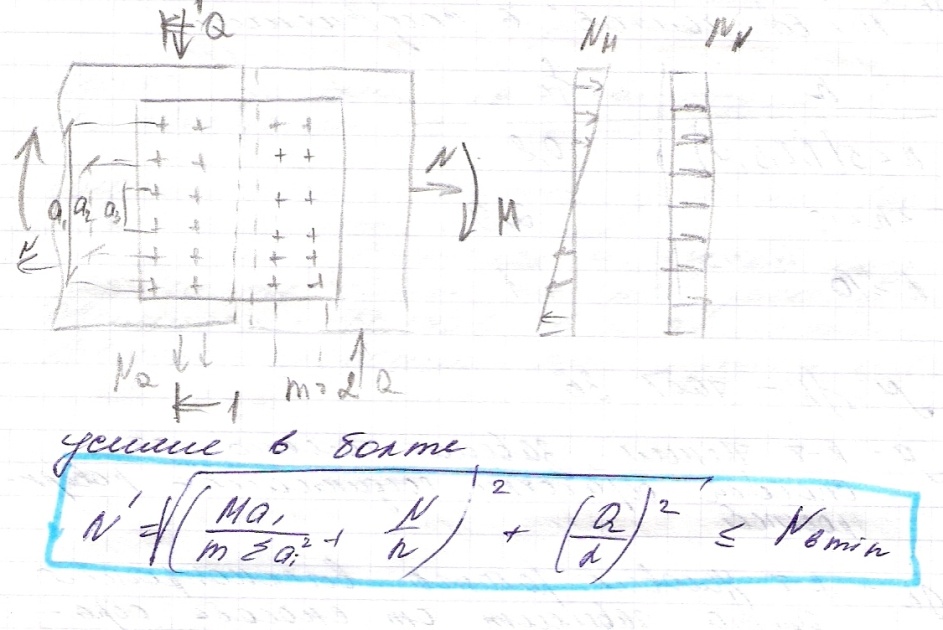 Q
N_M N_N
N M
a₁ a₂ a₃
N
N_Q m=2 Q
1
усилие в болте
N' = √((Ma₁/(m Σ aᵢ²) + N/n)² + (Q/n)²) ≤ N_bmin